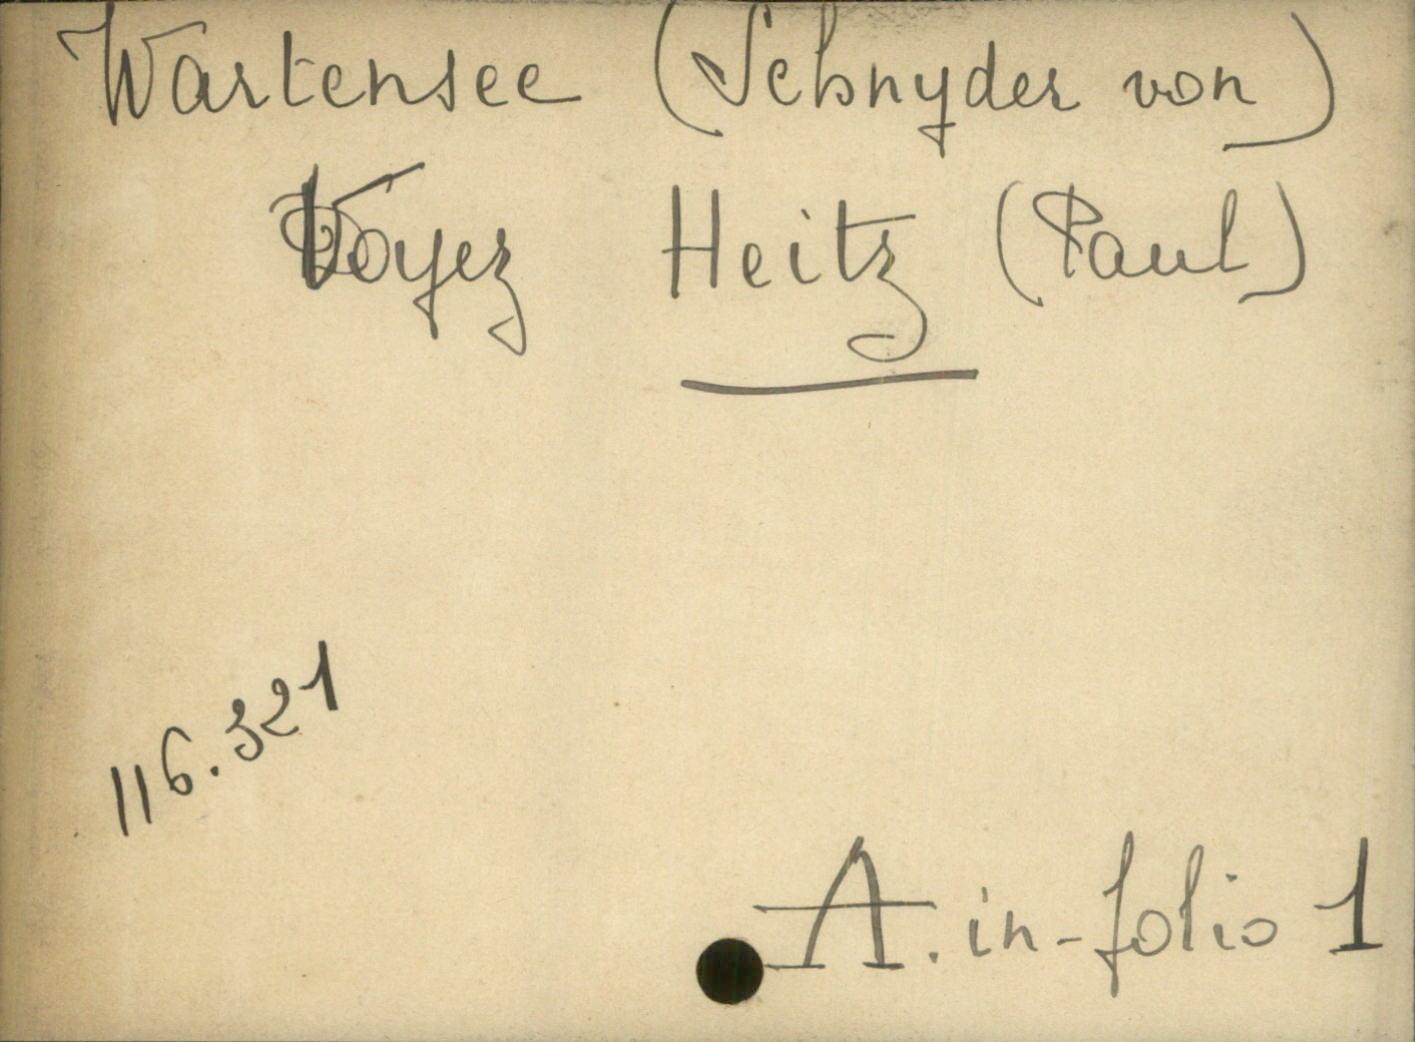 Wartensee (Schnyder von)
Voyez Heitz (Paul)
116.321
A. in-folio 1